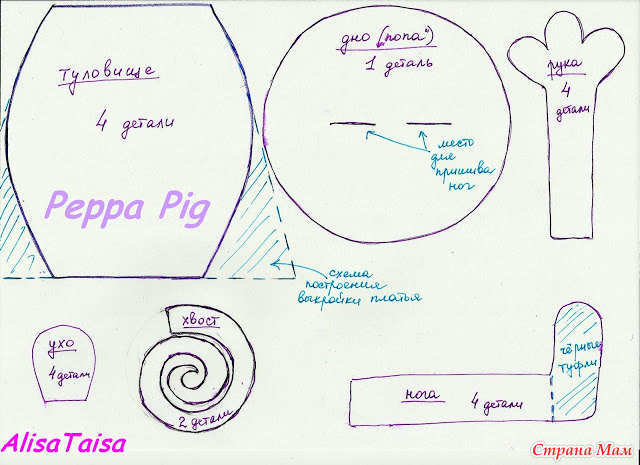 туловище
4 детали
Peppa Pig
дно ("попа")
1 деталь
место
для
пришива
ног
рука
4
детали
схема
построения
выкройки платья
ухо
4 детали
хвост
2 детали
нога 4 детали
чёрные
туфли
AlisaTaisa
Страна Мам